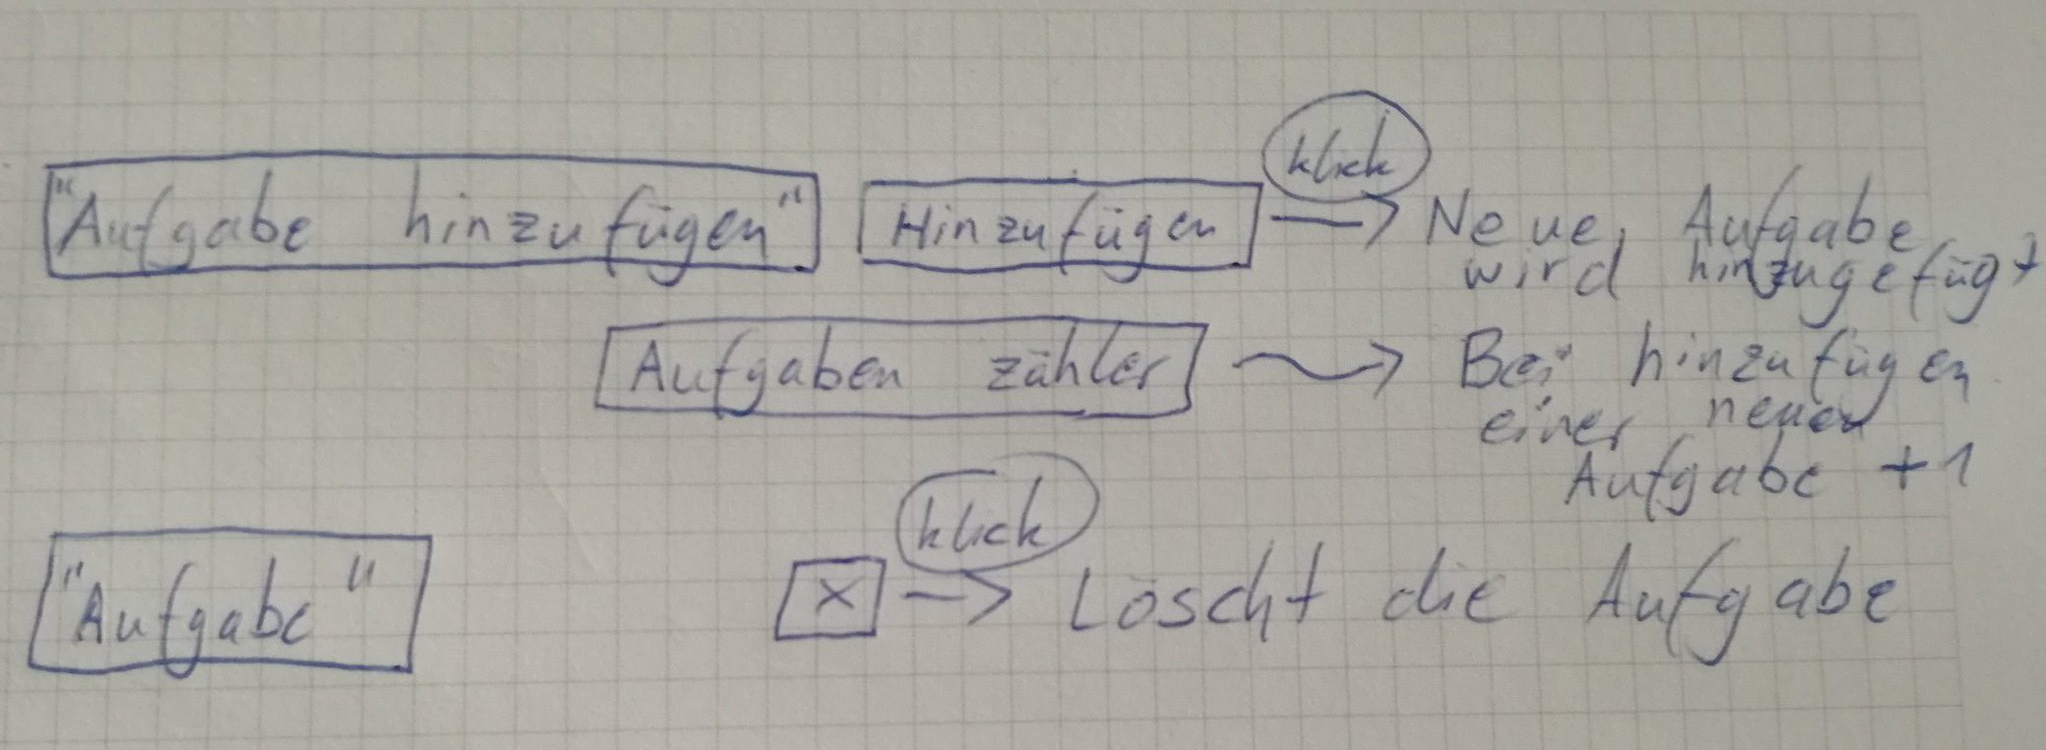 "Aufgabe hinzufügen" Hinzufügen klick → Neue Aufgabe
wird hinzugefügt
Aufgaben zähler → Bei hinzufügen
einer neuen
Aufgabe +1
"Aufgabe" X klick → Löscht die Aufgabe